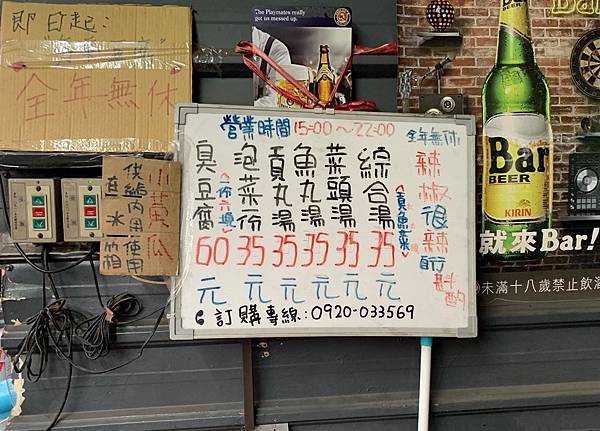 即日起:
全年無休
The Playmates really
got us messed up.
營業時間 15:00～22:00 全年無休
臭豆腐
<一份六塊>
60
元
泡菜一份
35
元
貢丸湯
35
元
魚丸湯
35
元
菜頭湯
35
元
綜合湯
<貢魚菜>
35
元
辣椒很辣
自行斟酌
訂購專線:0920-033569
小黃瓜
供給內用使用
Bar
BEER
KIRIN
就來Bar!
未滿十八歲禁止飲酒